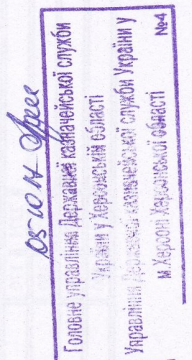 05 10 17
Головне управління Державної казначейської служби
України у Херсонській області
Управління Державної казначейської служби України у
м.Херсоні Херсонської області
№4